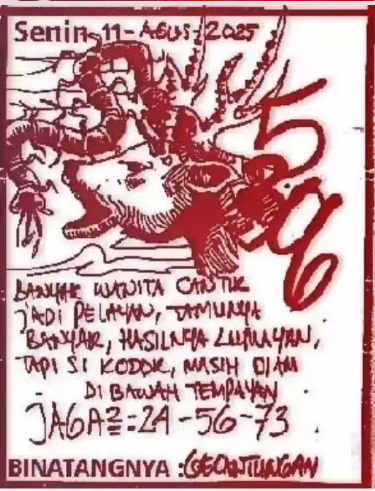 Senin, 11 - AGUS - 2025
5
96
BANYAK WANITA CANTIK
JADI PELAYAN, TAMUNYA
BANYAK, HASILNYA LUMAYAN,
TAPI SI KODOK, MASIH DIAM
DI BAWAH TEMPAYAN
JAGA2=:24-56-73
BINATANGNYA :